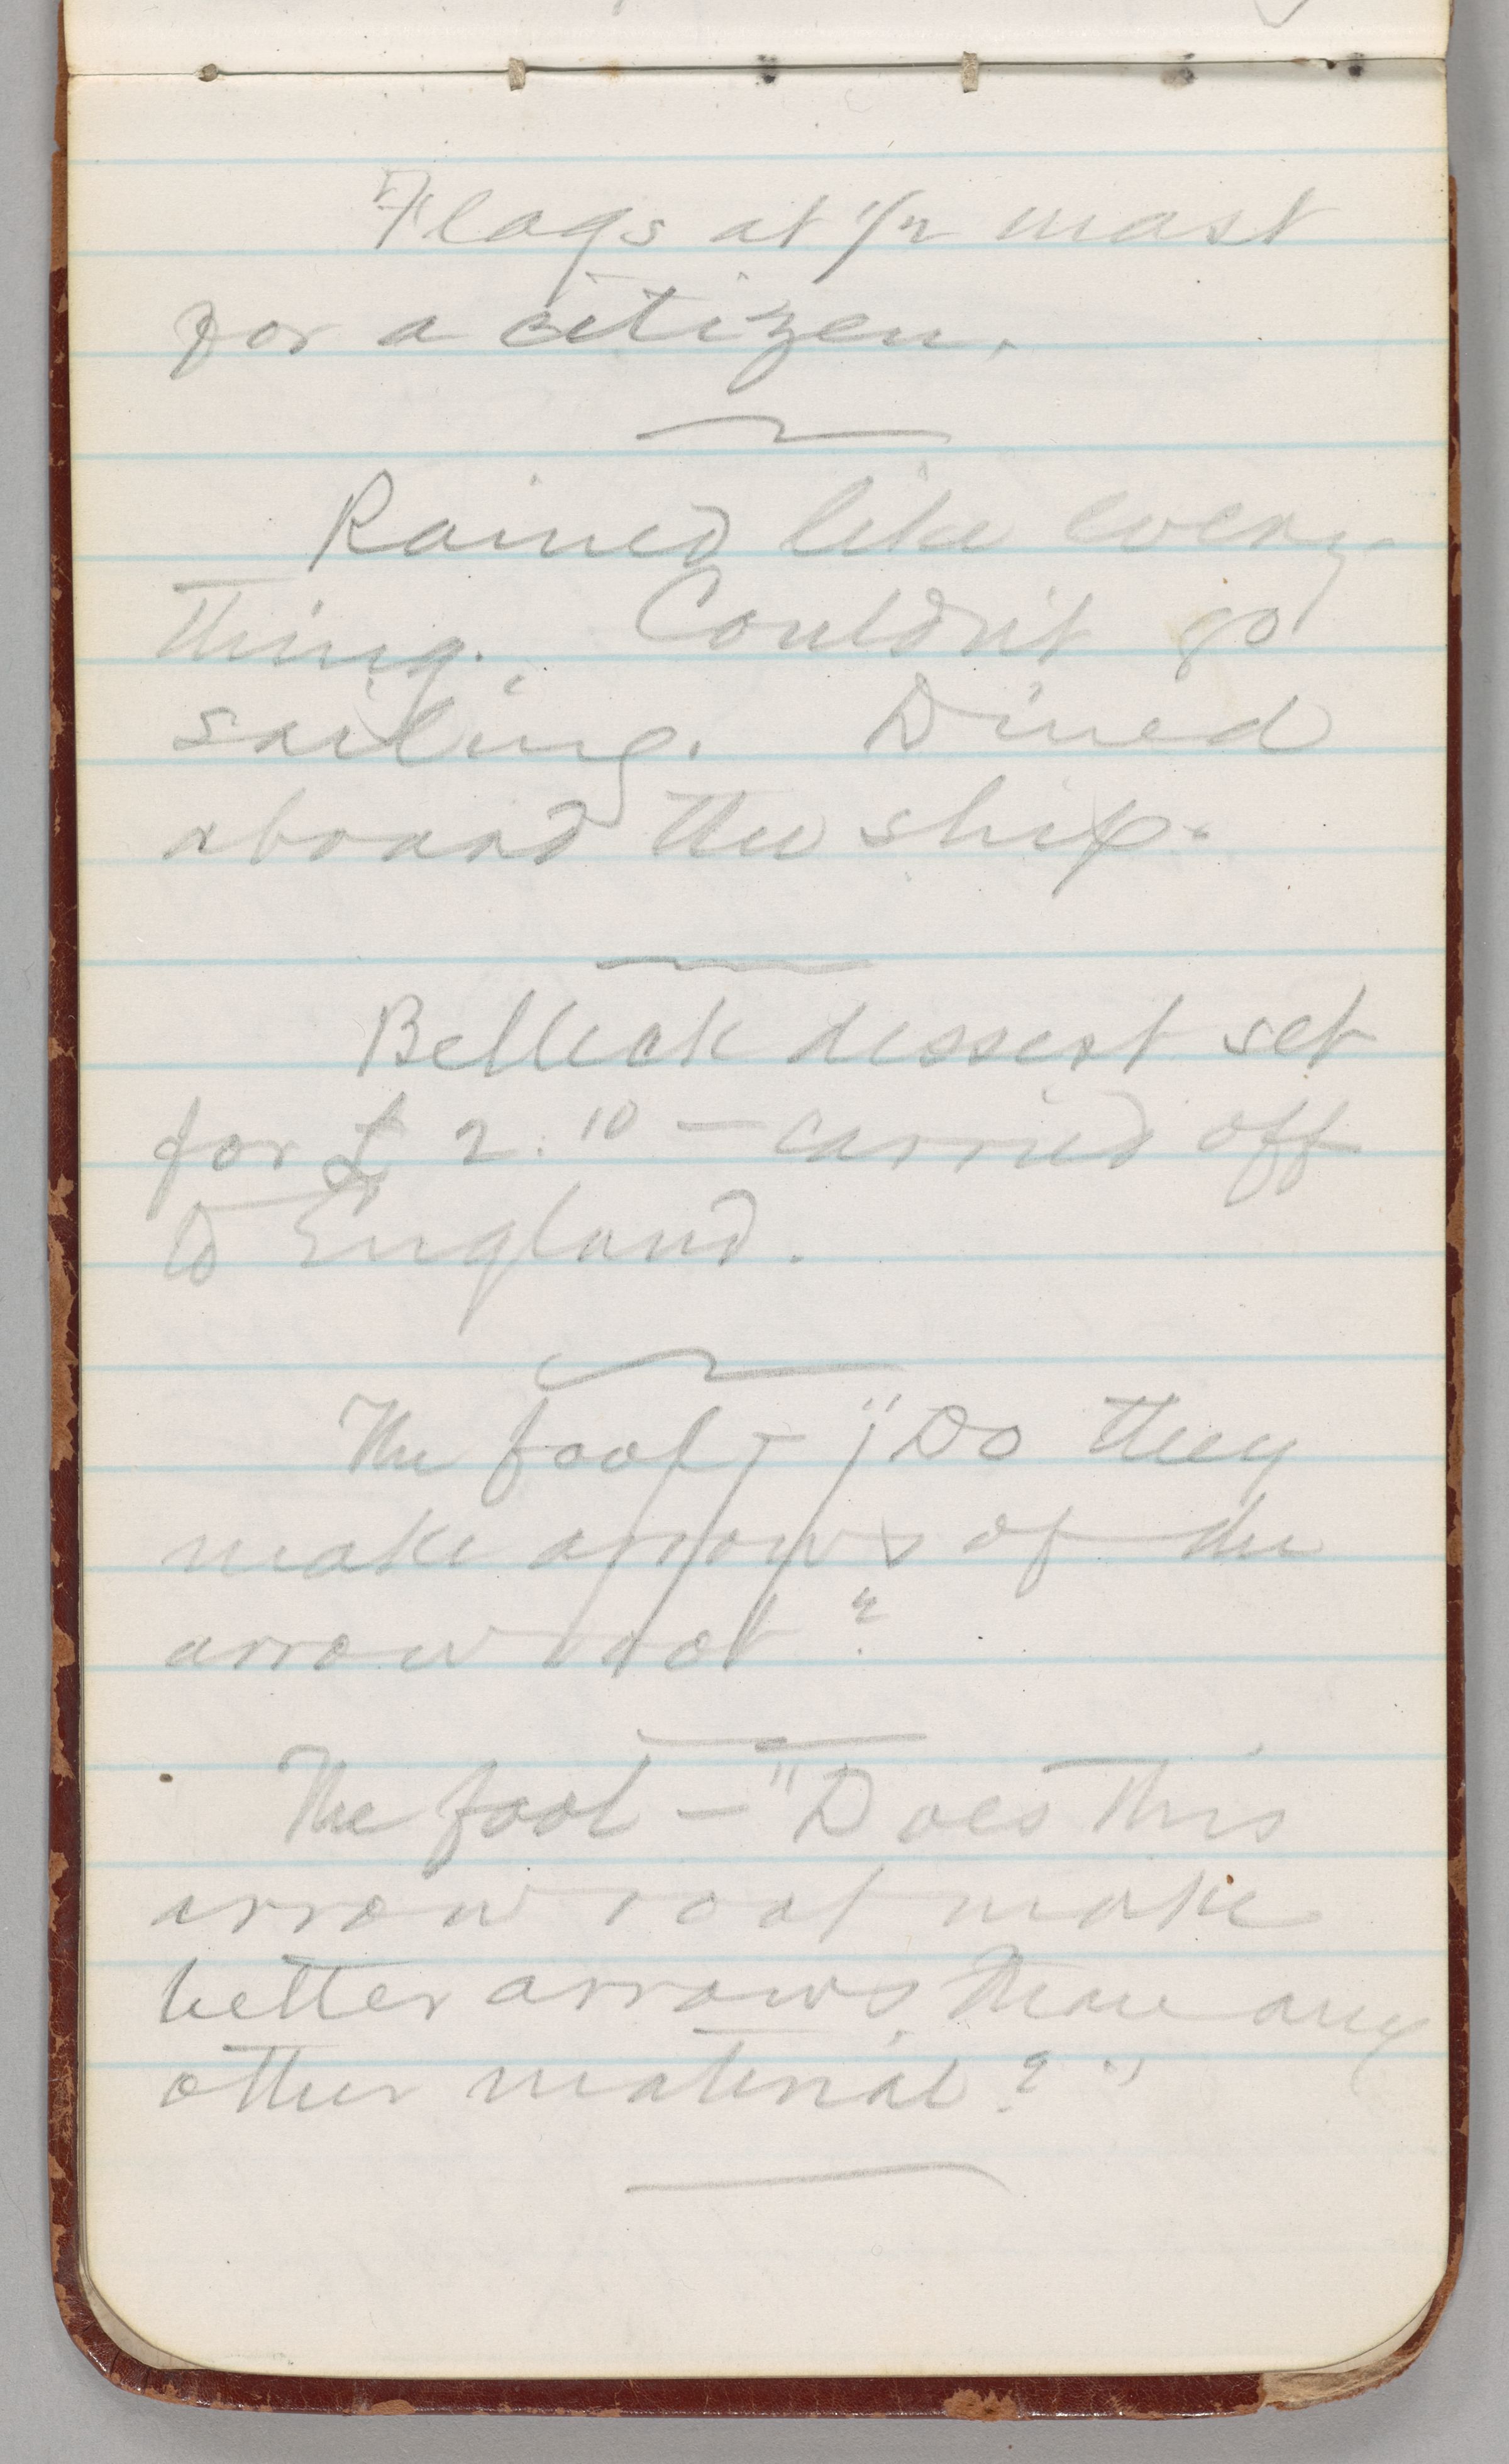 Flags at 1/2 mast
for a citizen.
Rained like every-
thing. Couldn't go
sailing. Dined
aboard the ship.
Belleek dessert set
for £2.10 — carried off
to England.
The fool — "Do they
make arrows of the
arrow root?
The fool — "Does this
arrow root make
better arrows than any
other material?"